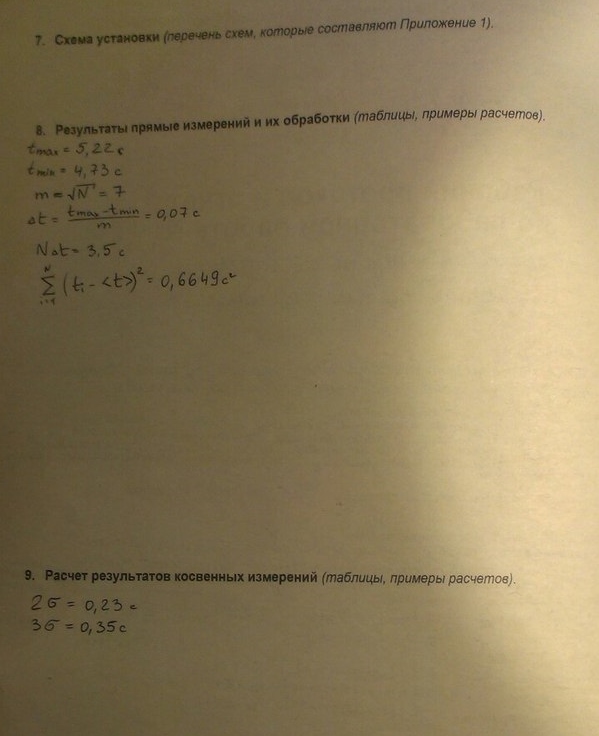 7. Схема установки (перечень схем, которые составляют Приложение 1).
8. Результаты прямые измерений и их обработки (таблицы, примеры расчетов).
t max = 5,22 с
t min = 4,73 с
m = √N = 7
Δt = (t max - t min)/m = 0,07 с
NΔt = 3,5 с
N
∑ (ti - <t>)² = 0,6649 с²
i=1
9. Расчет результатов косвенных измерений (таблицы, примеры расчетов).
2σ = 0,23 с
3σ = 0,35 с